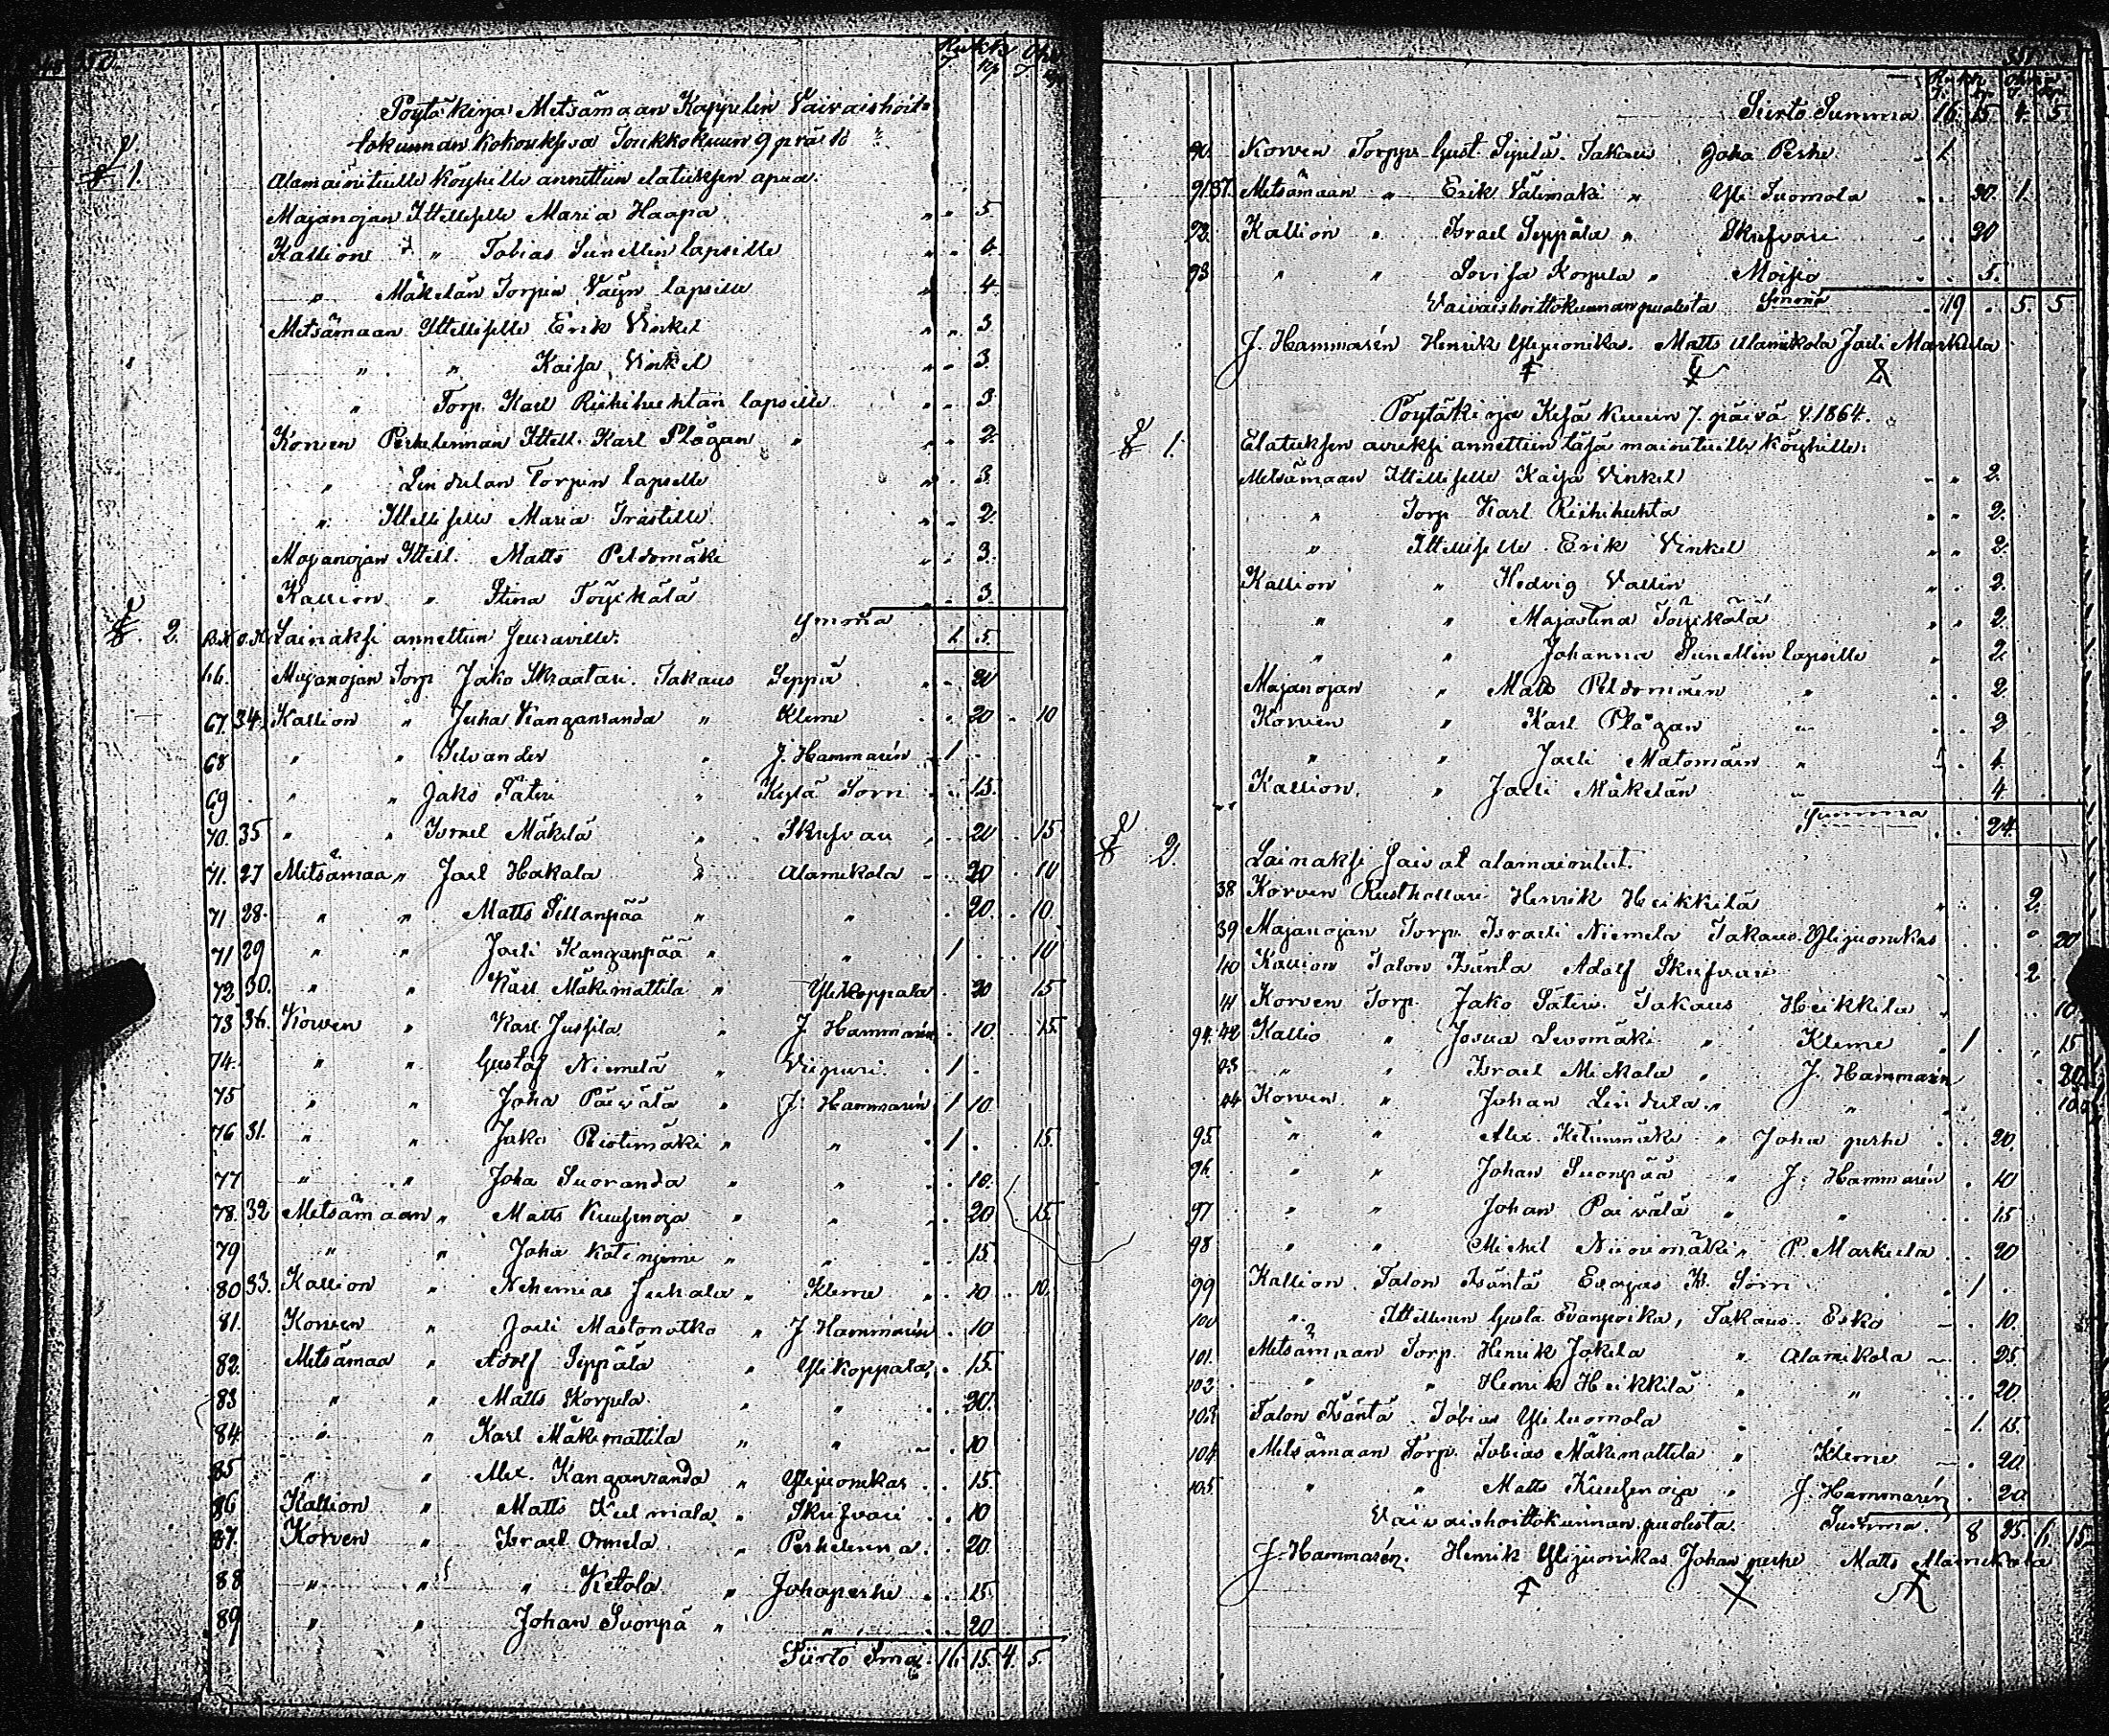 Pöytäkirja Metsämaan Kappelin Vaivaishoit-
tokunnan kokouksesa Toukkokuun 9 p:vä
§ 1. Alamainituille köyhille annettiin elatuksen apua.
Majanojan Ittelliselle Maria Haapa " " 5
Kallion " Tobias Sunellin lapsille " " 4
" Mäkelän Torpin Väyn lapsille " 4
Metsämaan Ittelliselle Erik Vinkel " " 3
" " Kaisa Vinkel " " 3
" Torp. Karl Riihihuhtan lapsille " " 3
Korven Perkelennan Ittell. Karl Plågan " " " 2
" Lindulan Torpin lapselle " " 3
" Ittelliselle Maria Tråstille " " 2
Majanojan Ittell. Matts Peldomäki " " 3
Kallion " Stina Töyikälä " 3
Summa 1 5
§ 2. Lainaksi annettiin Seuraville:
66. Majanojan Torp Jako Skraatari. Takaus Seppä " " 20
67. 34. Kallion " Juha Kanganranda " Kleme . . 20 . 10
68 " " Silvander " J. Hammarén . 1 .
69 " " Jako Sateri " Kylä Sorri . . 15.
70. 35 " " Israel Mäkilä " Skrifvari . 20 . 15
71. 27 Metsämaa " Joel Hakala " Alamikola . 20 . 10
71 28. " " Matts Sillanpää " " . 20 . 10
71 29 " " Joeli Kanganpää " " 1 . . 10
72 30. " " Karl Mäkimattila " Ylikoppala . 20 . 15
73 36. Korven " Karl Jussila " J. Hammarén . 10 . 15
74. " " Gustaf Niemelä " Viipuri . 1 .
75 " " Joha Päivälä " J. Hammarén 1 10
76 31. " " Jako Ristimäki " " . 1 . . 15.
77 " " Joha Suoranda " " . . 10.
78. 32 Metsämaan " Matts Kuusinoja " " . 20 . 15
79 " " Joha Katinjemi " " . . 15.
80 33. Kallion " Nehemias Juhala " Kleme . . 10 . 10.
81. Korven " Joeli Mastonotko " J. Hammarén . 10
82. Metsämaa " Adolf Sippälä " Ylikoppala . 15.
83 " " Matts Korpela " " . . 20.
84 " " Karl Mäkimattila " " . 10
85 " " Alex. Kanganranda " Ylijuonikas . . 15.
86 Kallion " Matts Kulmala " Skrifvari . . 10
87. Korven " Israel Onnela " Perkelenna . . 20
88 " " " Kitola " Johaperhe . . 15.
89 " " Johan Suonpä " " . . 20
Siirto Sma. 16. 15 4. 5.
351
Siirto Summa 16. 15 4. 5
90. Korven Torppr. Gust. Sipilä. Takaus Joha Perhe . 1.
91 37. Metsämaan " Erik Välimäki " Yli Suomola . . 20. 1.
92. Kallion " Israel Seppälä " Skrifvari . . 20
93 " " Lovisa Korpela " Moisio . . 5.
Vaivaishoittokunnan puolesta Summa . 19 . 5. 5
J. Hammarén Henrik Ylijuonikas. Matts Alamikola Joeli Markula
Pöytäkirja Kesä kuuun 7. päivä v. 1864.
§ 1. Elatuksen avuksi annettiin täsä mainituille köyhille:
Metsämaan Ittelliselle Kaisa Vinkel " " 2.
" Torp Karl Riihihuhta " " 2.
" Ittelliselle Erik Vinkel " " 2.
Kallion " Hedvig Vallin " . 2.
" " Majastina Töyikälä " " 2
" " Johanna Sunellin lapsille " 2.
Majanojan " Matts Peldomäen " . . 2.
Korven " Karl Plågan " . . 2
" " Joeli Matomäin " . 4.
Kallion " Joeli Mäkelän " 4
Summa 24.
§ 2. Lainaksi Saivat alamainitut.
38 Korven Rusthollari Henrik Heikkilä . . . 2.
39 Majanojan Torp. Israeli Niemela Takaus Ylijuonikas . . . 20
40 Kallion Talon Isänta Adolf Skrifvari . . 2
41 Korven Torp. Jako Säteri. Takaus Heikkila . . . 10
94. 42 Kallio " Josua Levomäki " Kleme . 1 . . 15
43 " " Israel Mickala " J. Hammarén . 20
44 Korven " Johan Lindula " " . 10
95. " " Alex. Ketunmäki " Joha perhe . . 20.
96. " " Johan Suonpää " J. Hammarén . 10
97 " " Johan Paivälä " " . . 15
98 " " Michel Niinimäki " P. Markula . . 20
99 Kallion Talon Isäntä Esajas K. Sorri . 1 .
100 " Ittellinen Gusta Evanpoika, Takaus Esko . 10.
101. Metsämaan Torp. Henrik Jokela " Alamikola . . 25.
102 . " " Henrik Heikkilä " " . . 20.
103 Talon Isäntä Tobias Yli suomola . 1. 15.
104. Metsämaan Torp. Tobias Mäkimattila " Kleme . . 20.
105 " " Matts Kuusinoja " J. Hammarén . 20
Vaivaishoittokunnan puolesta. Summa. 8 25. 6. 15
J. Hammarén. Henrik Ylijuonikas Johan perhe Matts Alamikola